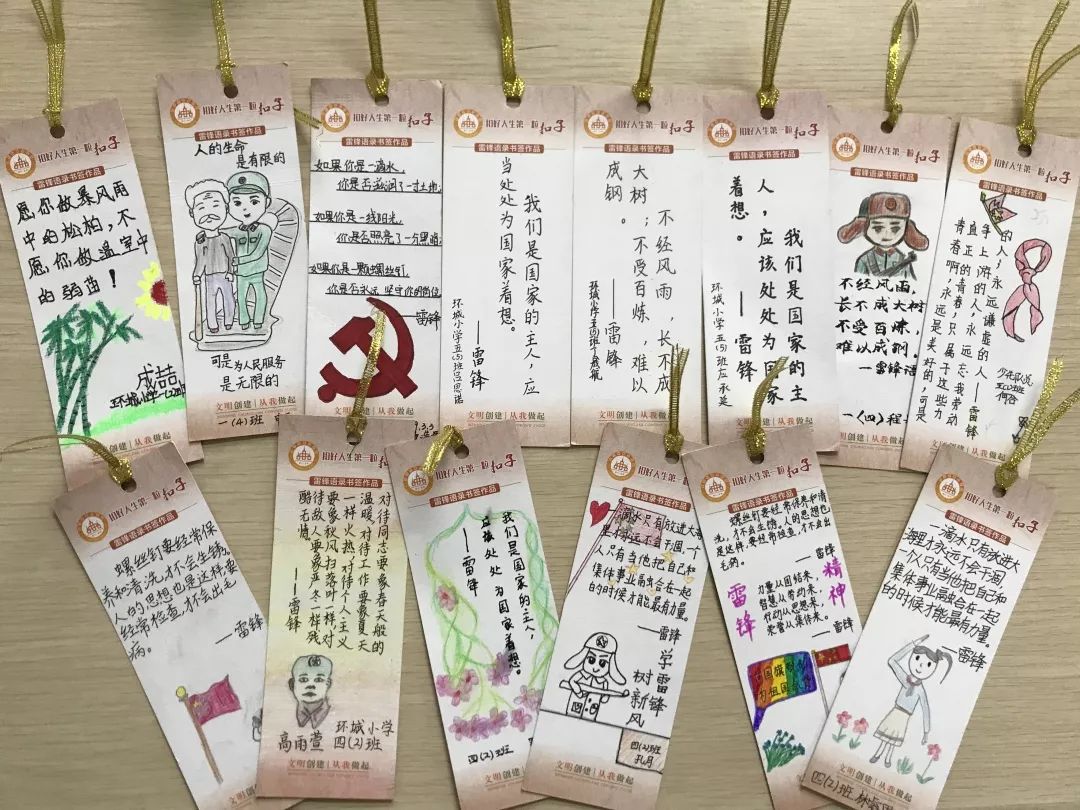 扣好人生第一粒扣子
雷锋语录书签作品
愿你做暴风雨
中的松柏，不
愿你做温室中
的弱苗！
成喆
扣好人生第一粒扣子
雷锋语录书签作品
人的生命
是有限的
可是为人民服务
是无限的
文明创建 | 从我做起
一(4)班
扣好人生第一粒扣子
雷锋语录书签作品
如果你是一滴水，
你是否滋润了一寸土地；
如果你是一线阳光，
你是否照亮了一分黑暗；
如果你是一颗螺丝钉，
你是否永远坚守你的岗位
—雷锋
扣好人生第一粒扣子
雷锋语录书签作品
我们是国家的主人，应
当处处为国家着想。
——雷锋
环城小学五(5)班
文明创建 | 从我做起
扣好人生第一粒扣子
雷锋语录书签作品
不经风雨，长不成
大树；不受百炼，难以
成钢。
——雷锋
扣好人生第一粒扣子
雷锋语录书签作品
我们是国家的主
人，应该处处为国家
着想。
——雷锋
环城小学五(5)班应承延
扣好人生第一粒扣子
雷锋语录书签作品
不经风雨，
长不成大树
不受百炼，
难以成钢。
—雷锋语
一(四)班
文明创建 | 从我做起
扣好人生第一粒扣子
雷锋语录书签作品
的人，永远谦虚的人—雷锋
争上游的人，永远忘我劳动
真正的青春，只属于这些力
青春啊，永远是美好的，可是
扣好人生第一粒扣子
雷锋语录书签作品
螺丝钉要经常保
养和清洗，才不会生锈。
人的思想也是这样，要
经常检查，才不会出毛
病。
—雷锋
文明创建 | 从我做起
扣好人生第一粒扣子
雷锋语录书签作品
对待同志要象春天般的
温暖，对待工作要象夏天
一样火热，对待个人主义
要象秋风扫落叶一样，对
待敌人要象严冬一样残
酷无情。
——雷锋
环城小学
高雨萱 四(2)班
文明创建 | 从我做起
扣好人生第一粒扣子
雷锋语录书签作品
我们是国家的主人，
应该处处为国家着想。
——雷锋
四(2)班
文明创建 | 从我做起
扣好人生第一粒扣子
雷锋语录书签作品
滴水只有放进大海
里才永远不会干涸，一个
人只有当他把自己和
集体事业融合在一起
的时候才能最有力量。
—雷锋
学雷锋
树新风
四(2)班
孔月
文明创建 | 从我做起
扣好人生第一粒扣子
雷锋语录书签作品
螺丝钉要经常保养和清
洗，才不会生锈。人的思想也
是这样，要经常检查，才不会出
毛病。
—雷锋
雷锋
精神
力量从团结来，
智慧从劳动来，
行动从思想来，
荣誉从集体来。
—雷锋
文明创建 | 从我做起
扣好人生第一粒扣子
雷锋语录书签作品
一滴水只有放进大
海里才永远不会干涸，
一个人只有当他把自己和
集体事业融合在一起
的时候才能最有力量。
—雷锋
文明创建 | 从我做起
四(2)班